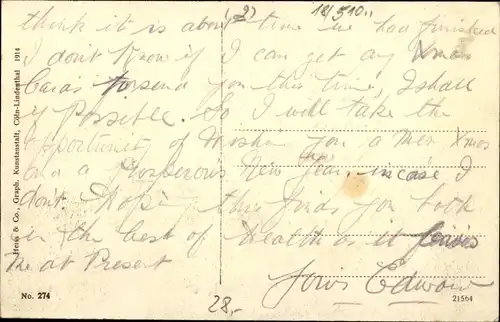 (2)
18/510..
think it is about time we had finished
I don't Know if I can get any Xmas
Cards to send you this time, I shall
if Possible. So I will take the
opportunity of Wishing you a Mery Xmas
and a Prosperous New Year incase I
don't. Hope this finds you both
in the best of Health as it leaves
Me at Present
Yours Edward
28,-
Heiss & Co., Graph. Kunstanstalt, Cöln-Lindenthal 1914
No. 274
21564